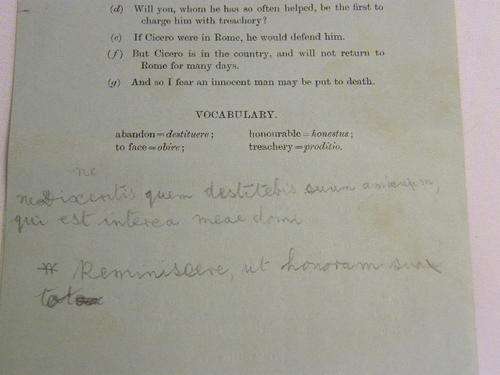 (d) Will you, whom he has so often helped, be the first to
charge him with treachory?
(e) If Cicero were in Rome, he would defend him.
(f) But Cicero is in the country, and will not return to
Rome for many days.
(g) And so I fear an innocent man may be put to death.
VOCABULARY.
abandon = destituere; honourable = honestus;
to face = obire; treachery = proditio.
ne
quem destitebis suum amicum,
qui est interea meae domi
Reminiscere, ut honoram